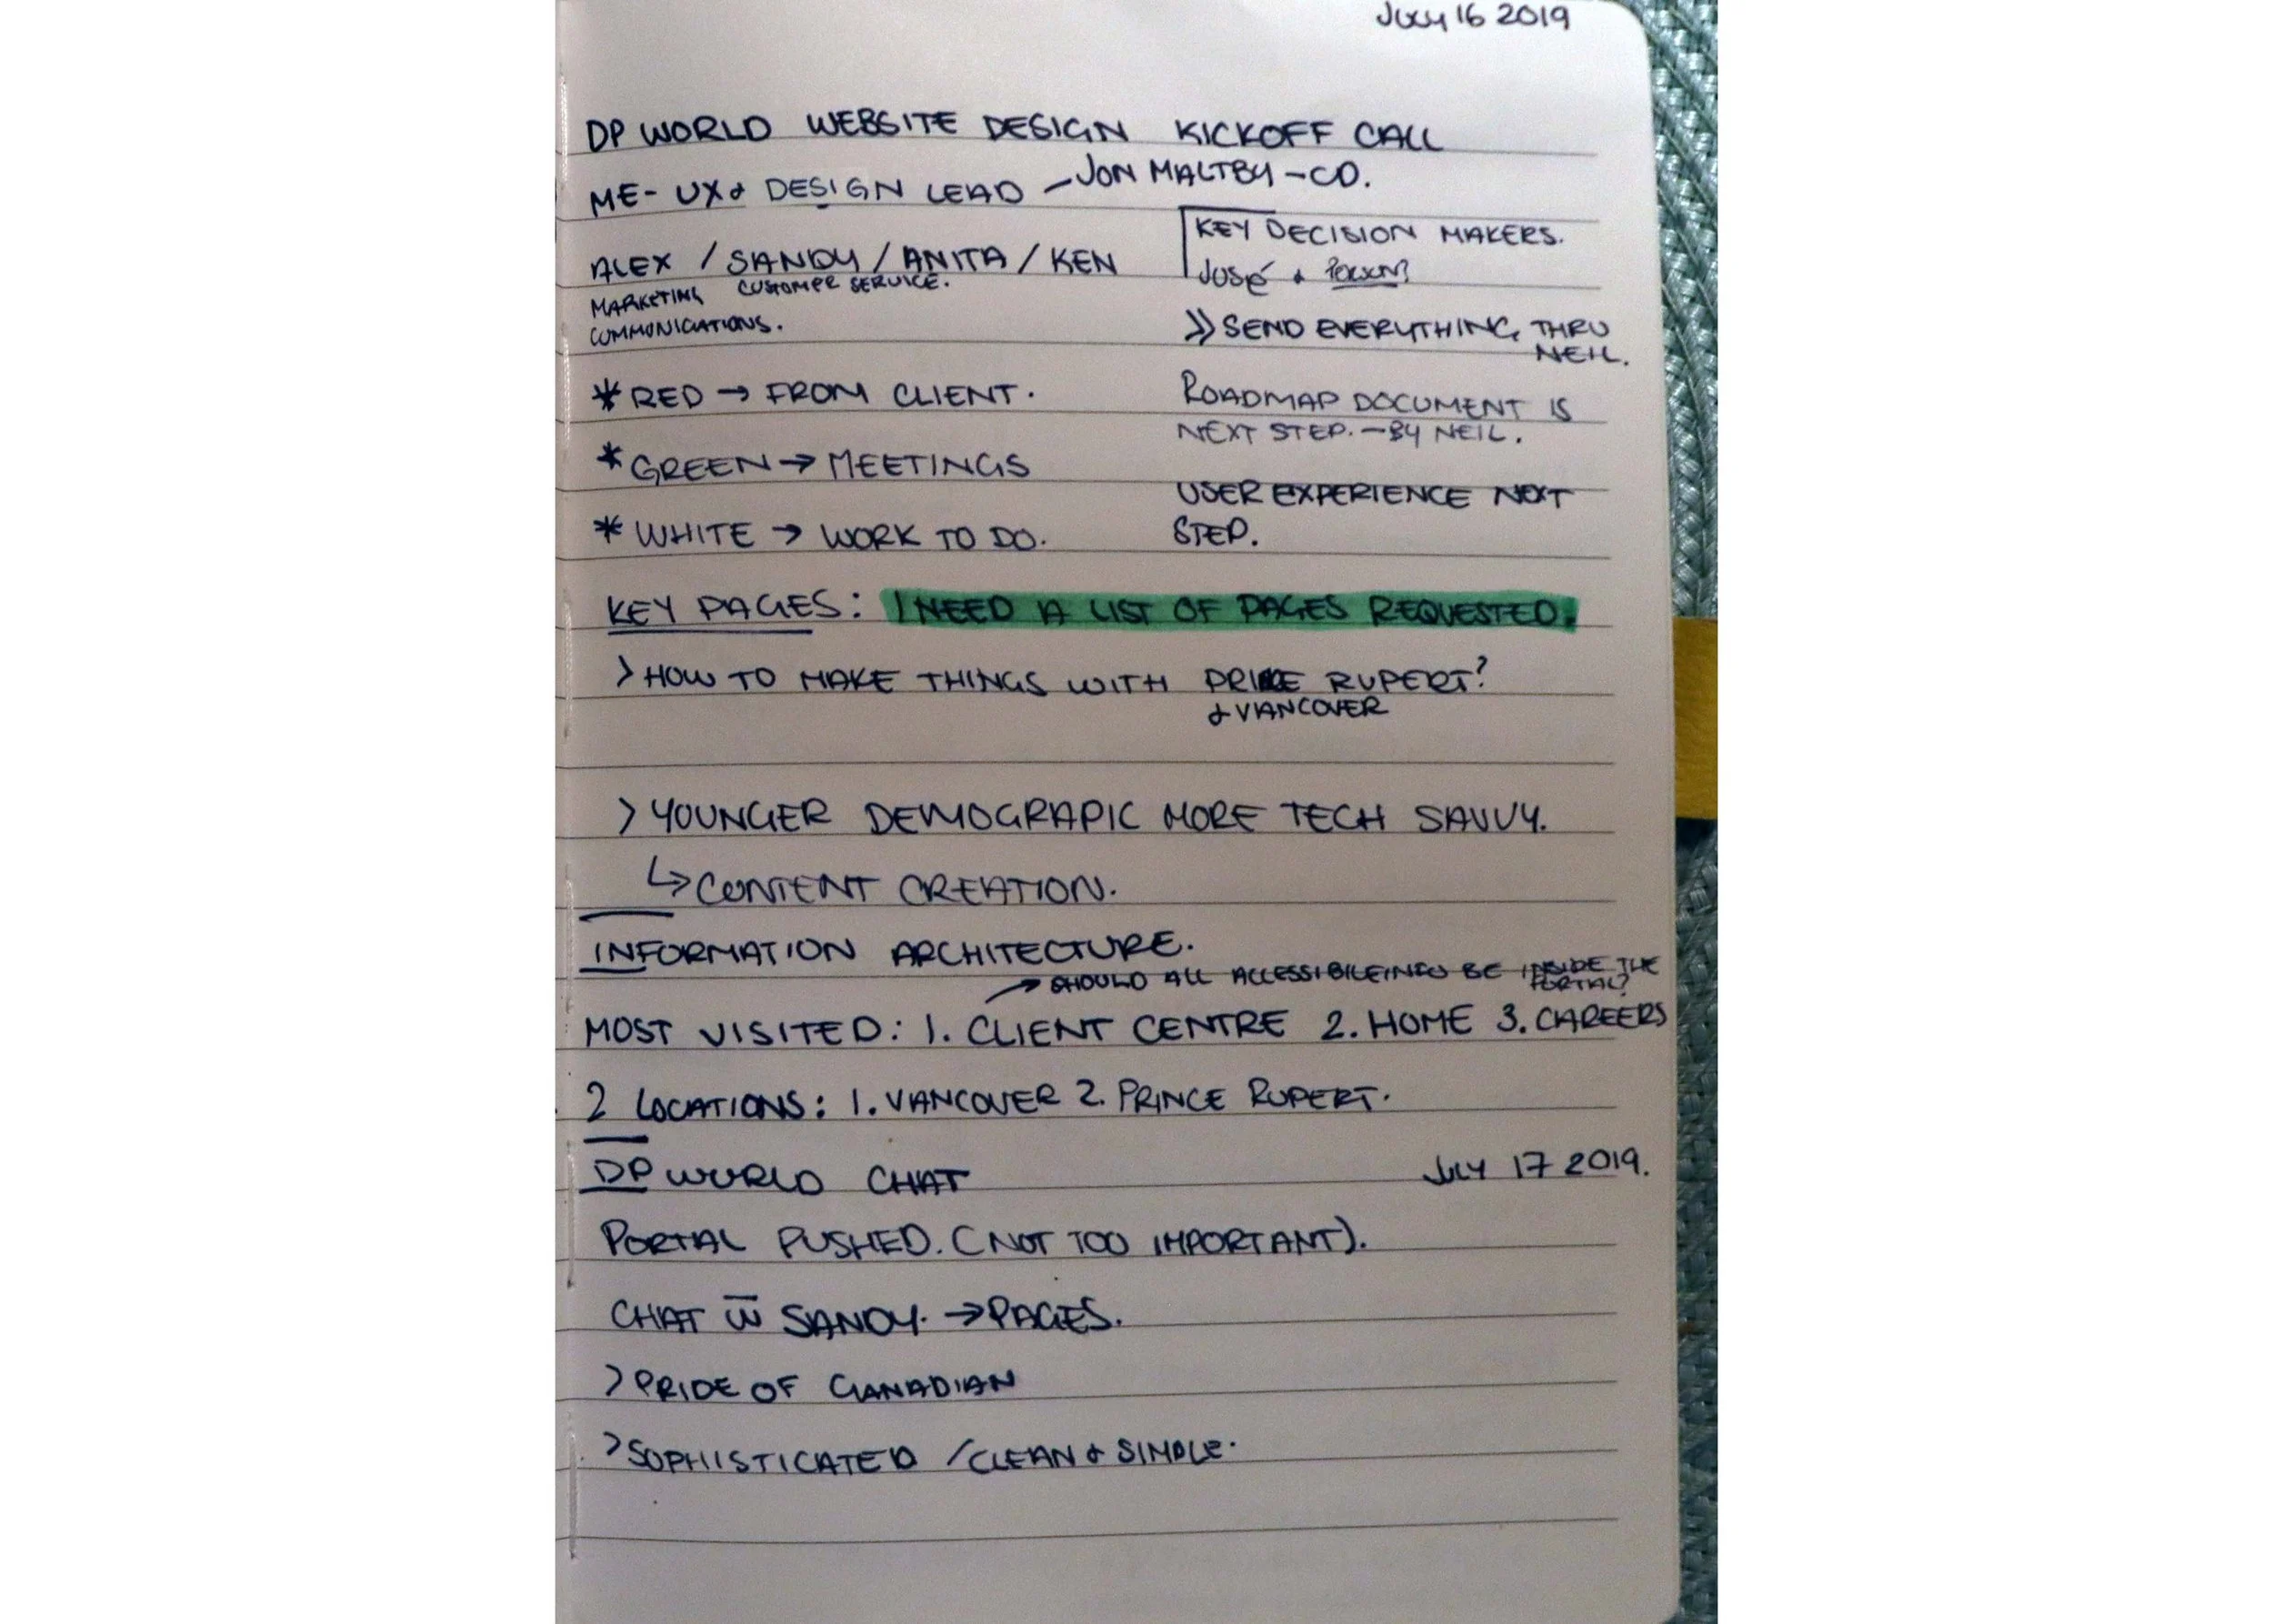 July 16 2019
DP WORLD WEBSITE DESIGN KICKOFF CALL
ME- UX & DESIGN LEAD - JON MALTBY - CD.
ALEX / SANDY / ANITA / KEN
MARKETING CUSTOMER SERVICE.
COMMUNICATIONS.
KEY DECISION MAKERS.
JOSÉ &
>> SEND EVERYTHING THRU
NEIL.
* RED → FROM CLIENT.
* GREEN → MEETINGS
* WHITE → WORK TO DO.
ROADMAP DOCUMENT IS
NEXT STEP. - BY NEIL.
USER EXPERIENCE NEXT
STEP.
KEY PAGES: I NEED A LIST OF PAGES REQUESTED.
> HOW TO MAKE THINGS WITH RUPERT?
& VANCOVER
> YOUNGER DEMOGRAPIC MORE TECH SAVVY.
↳ CONTENT CREATION.
INFORMATION ARCHITECTURE.
→ SHOULD ALL ACCESSIBILE INFO BE INSIDE THE
PORTAL?
MOST VISITED: 1. CLIENT CENTRE 2. HOME 3. CAREERS
2 LOCATIONS: 1. VANCOVER 2. PRINCE RUPERT.
DP WORLD CHAT JULY 17 2019.
PORTAL PUSHED. (NOT TOO IMPORTANT).
CHAT w̅ SANDY. → PAGES.
> PRIDE OF CANADIAN
> SOPHISTICATED / CLEAN & SIMPLE.